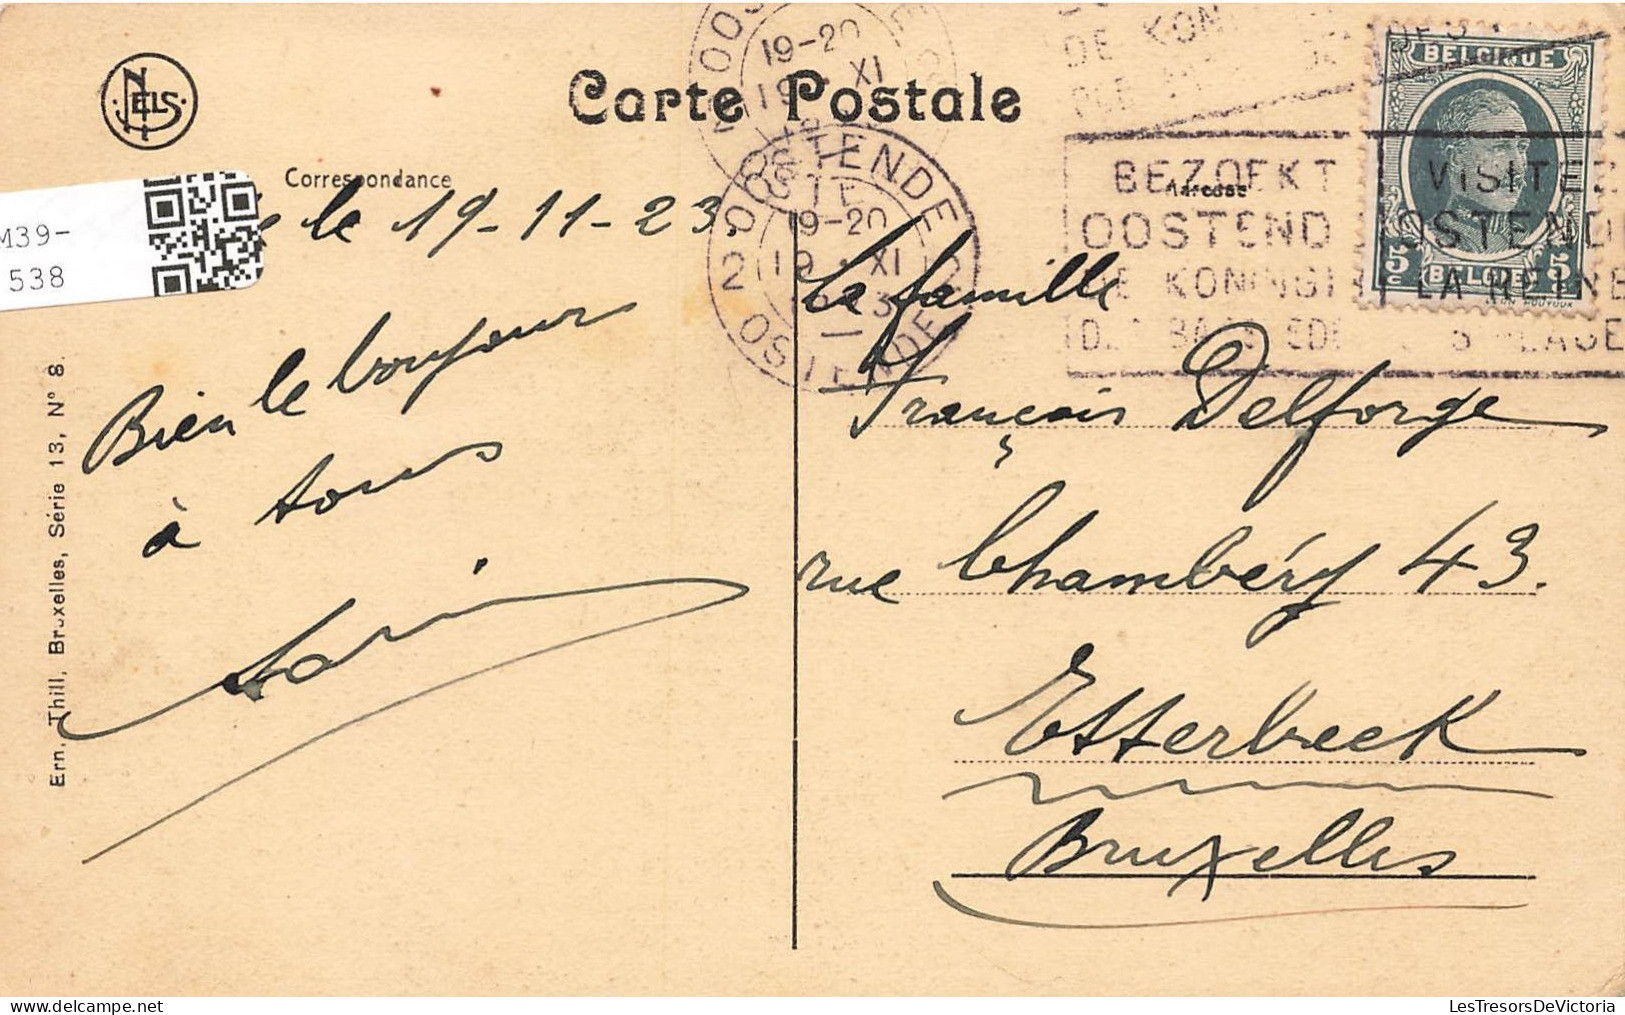 NELS
Carte Postale
Correspondance
Adresse
M39-
538
le 19-11-23.
Bien le bonjour
à tous
Ern. Thill, Bruxelles, Série 13, N° 8.
OOSTENDE
19-20
19 · XI
2 OSTENDE 2
19-20
19 · XI
OOSTENDE
BEZOEKT
OOSTEND
VISITEZ
OSTENDE
LA REINE
PLAGE
BELGIQUE
5c
BELGIE
5c
La famille
François Delforge
rue Chambéry 43.
Etterbeek
Bruxelles
LesTresorsDeVictoria